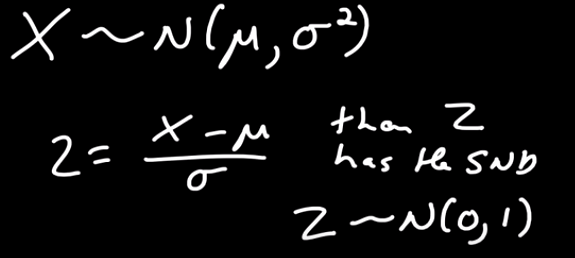 X ~ N(μ, σ²)
Z = (X - μ) / σ
then Z
has the SND
Z ~ N(0, 1)